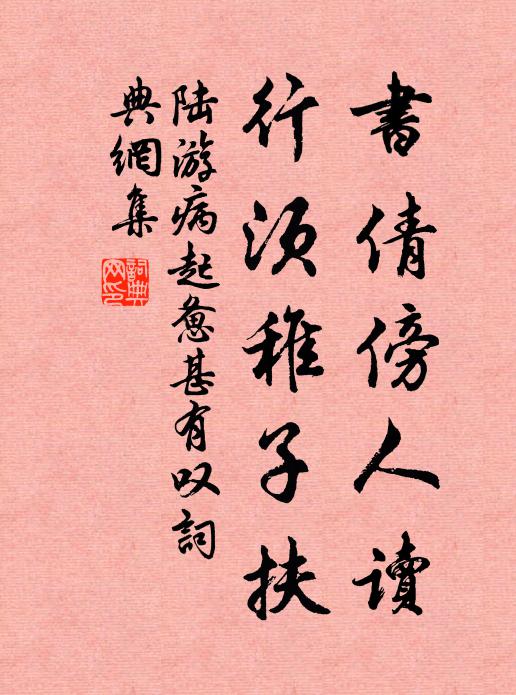 書倩傍人讀
行須稚子扶
陆游病起惫甚有叹詞
典網集
詞典网印